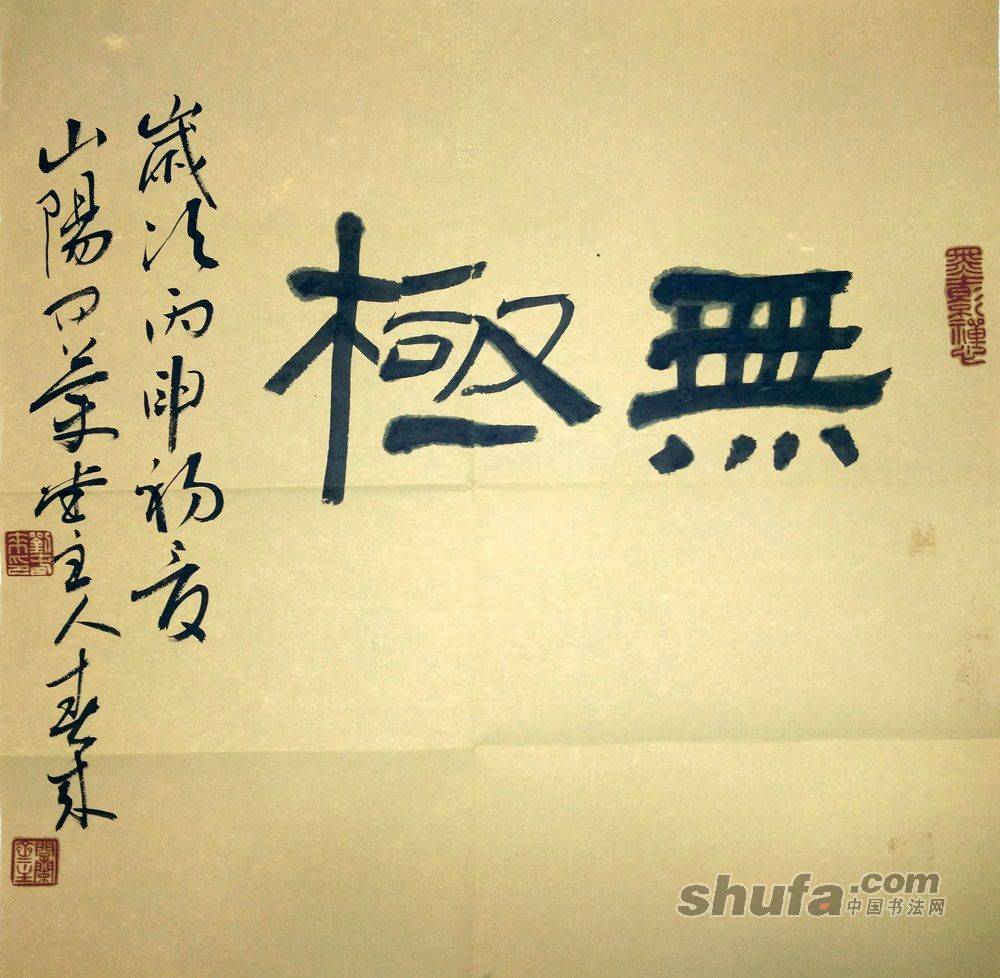 無極
歲次丙申初夏
山陽 堂主人春來
shufa.com
中国书法网